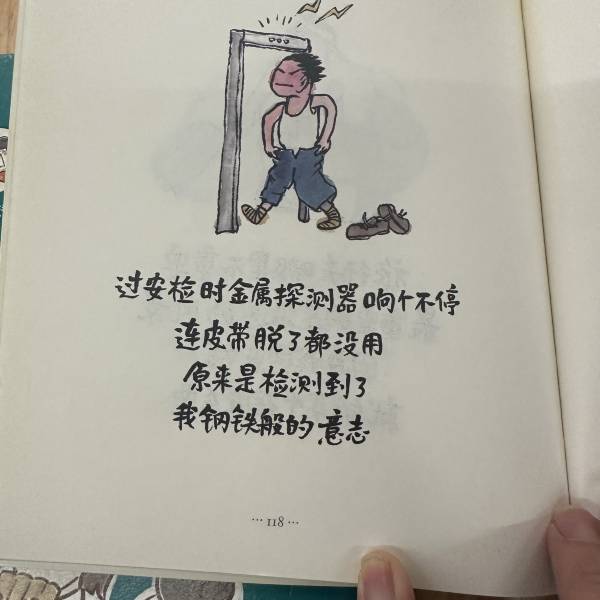 过安检时金属探测器响个不停
连皮带脱了都没用
原来是检测到了
我钢铁般的意志
... 118 ...